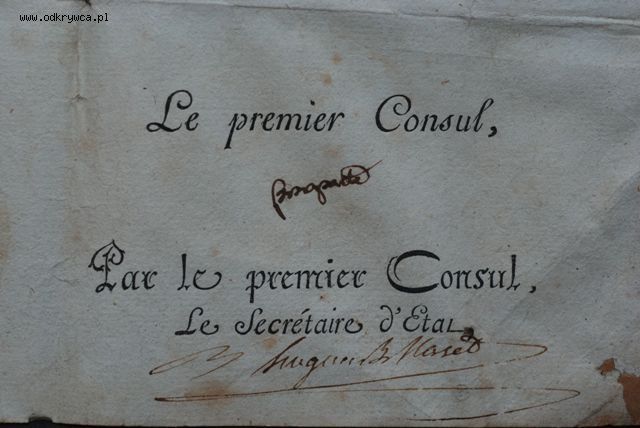 www.odkrywca.pl
Le premier Consul,
Bonaparte
Par le premier Consul,
Le Secrétaire d'Etat,
hugues B. Maret